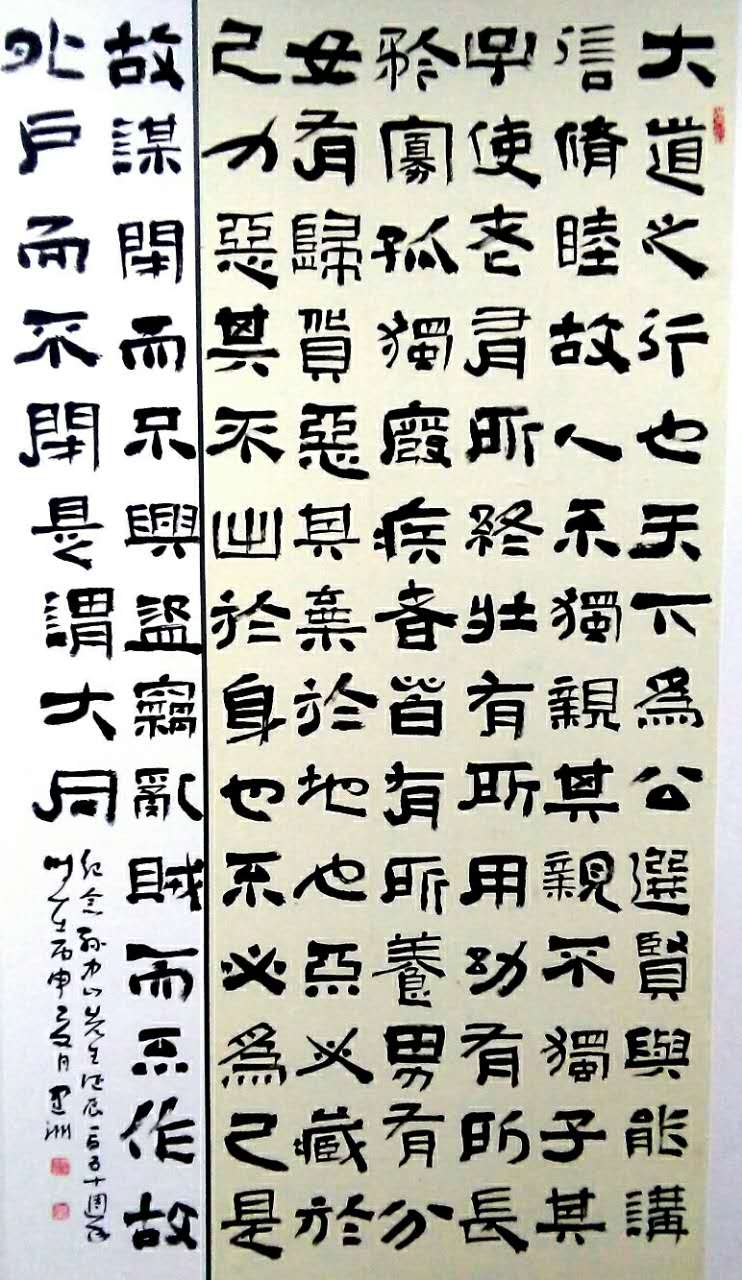 大道之行也天下為公選賢與能講
信脩睦故人不獨親其親不獨子其
子使老有所終壯有所用幼有所長
矜寡孤獨廢疾者皆有所養男有分
女有歸貨惡其棄於地也不必藏於
己力惡其不出於身也不必為己是
故謀閉而不興盜竊亂賊而不作故
外戶而不閉是謂大同
紀念孫中山先生誕辰一百五十週年
丙申夏月